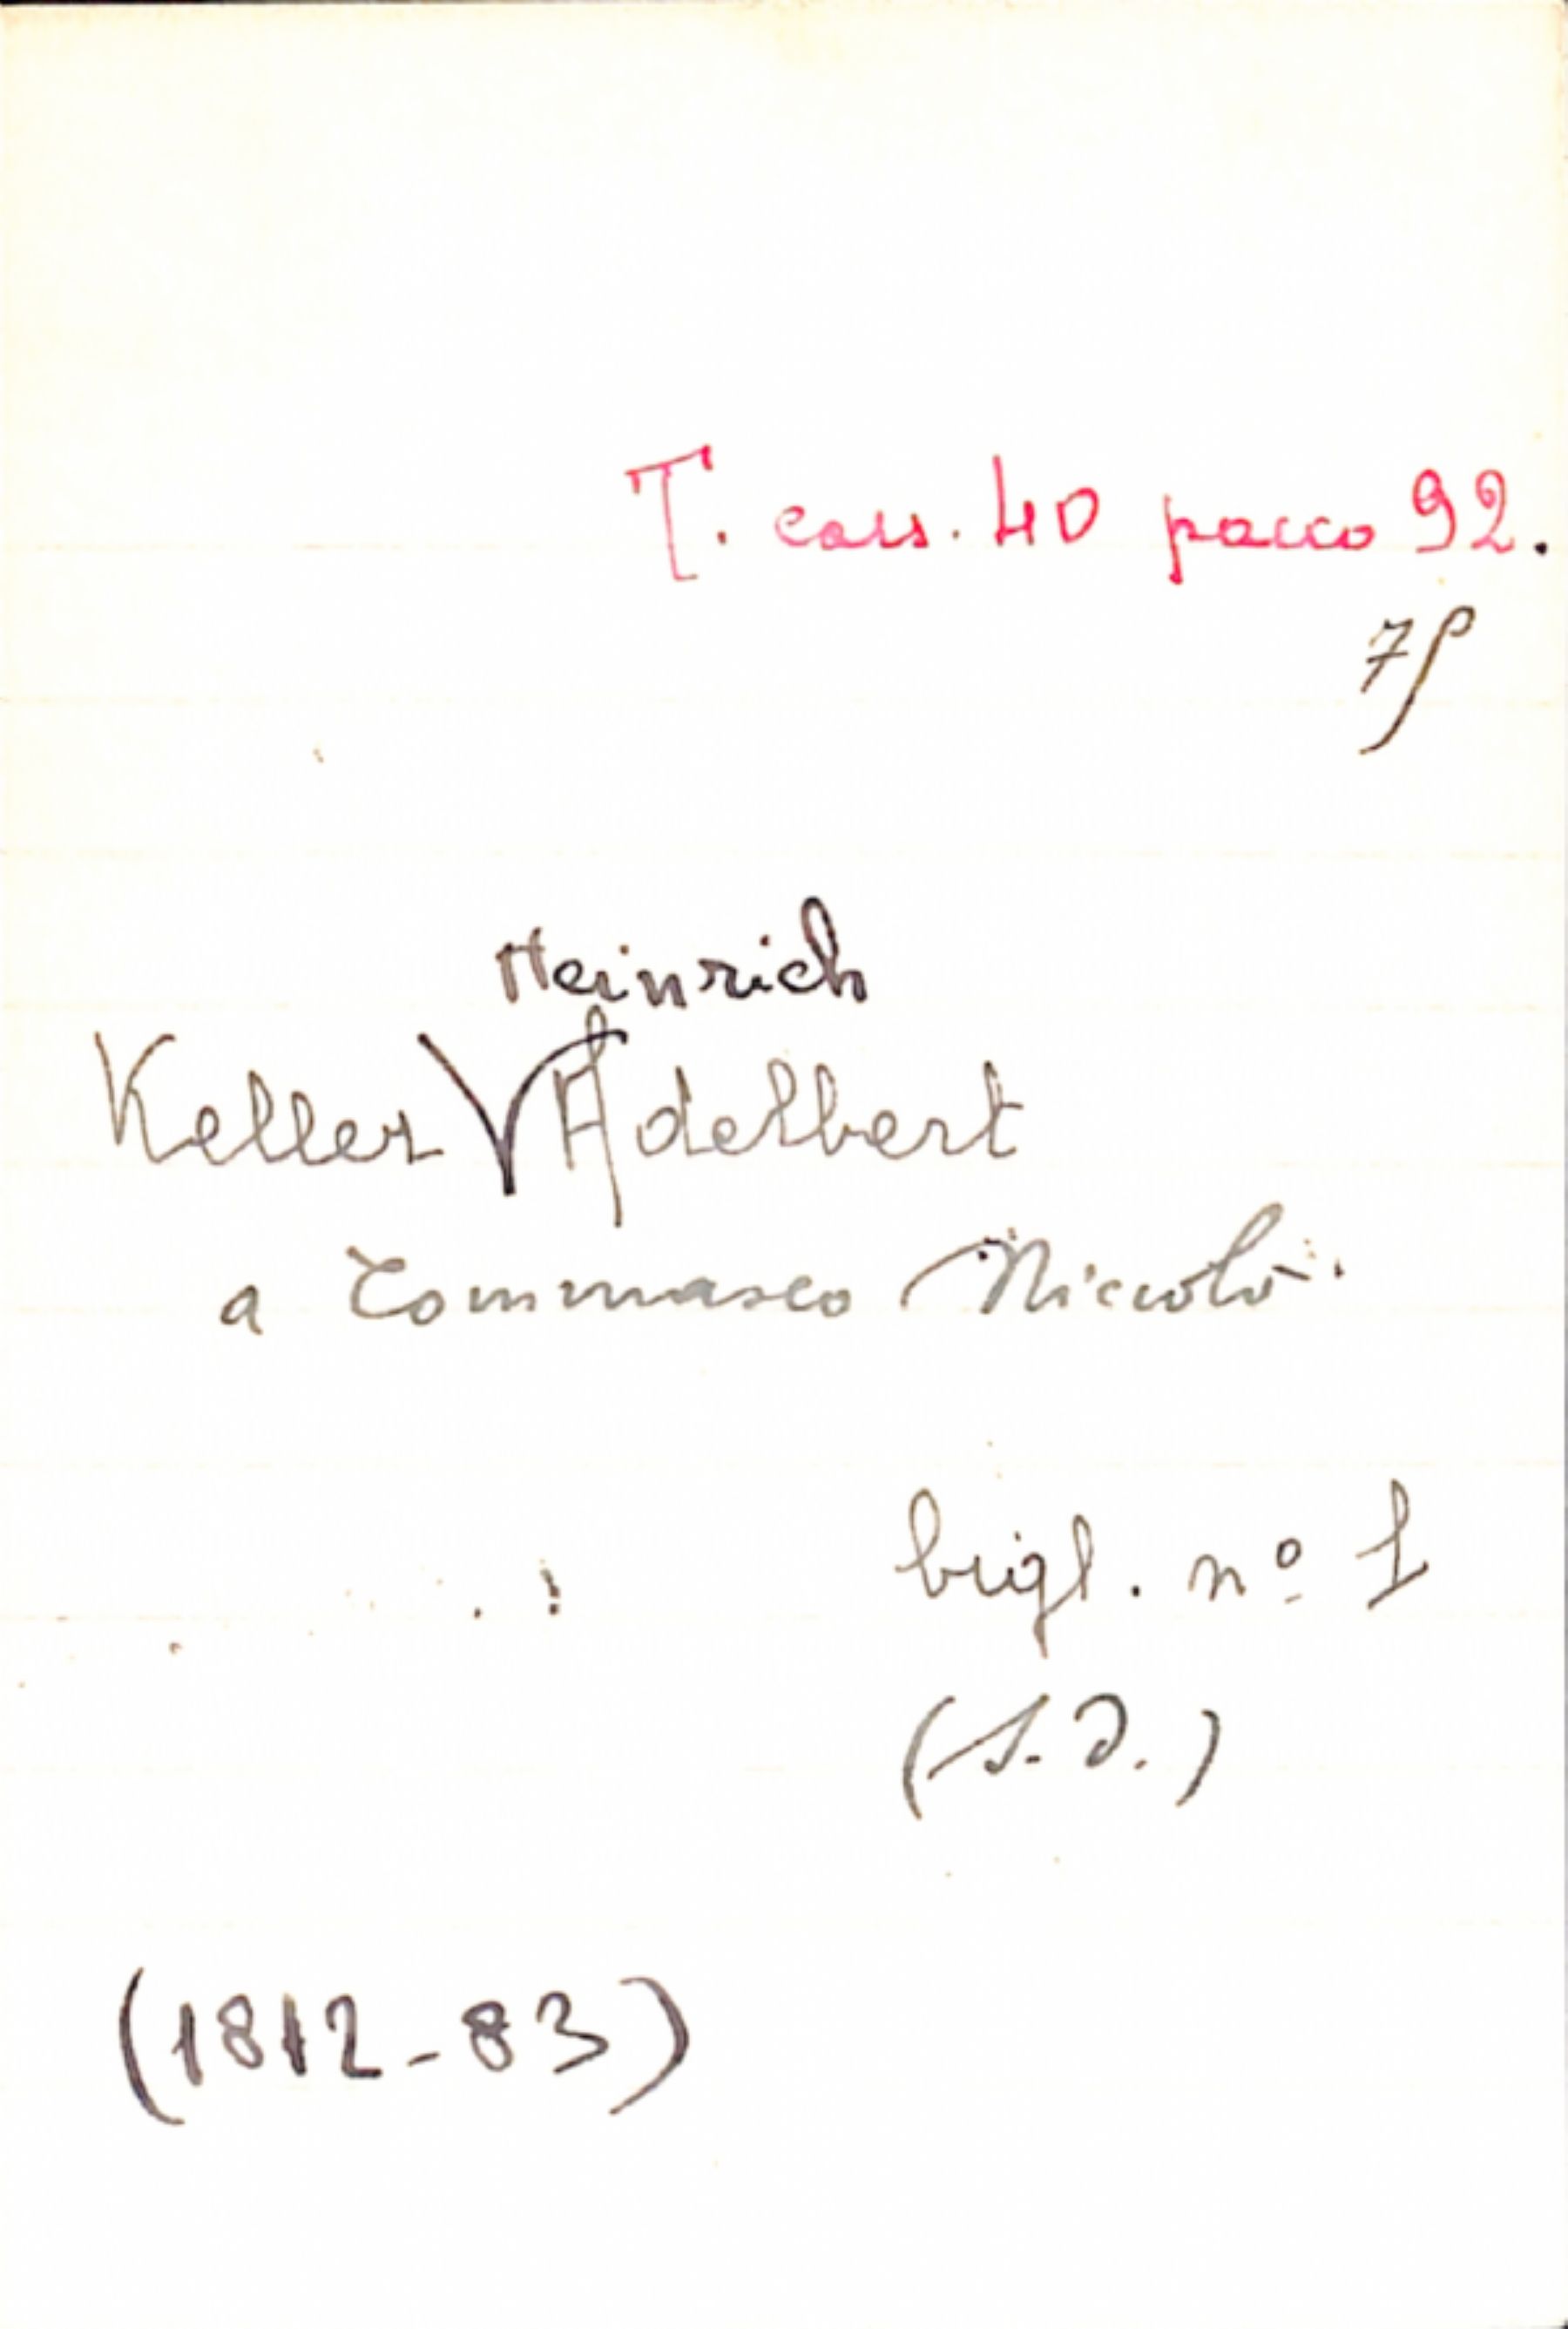 T. cass. 40 pacco 92.
Heinrich
Keller Adelbert
a Tommaseo Niccolò.
bigl. nº 1
(S. D.)
(1812-83)